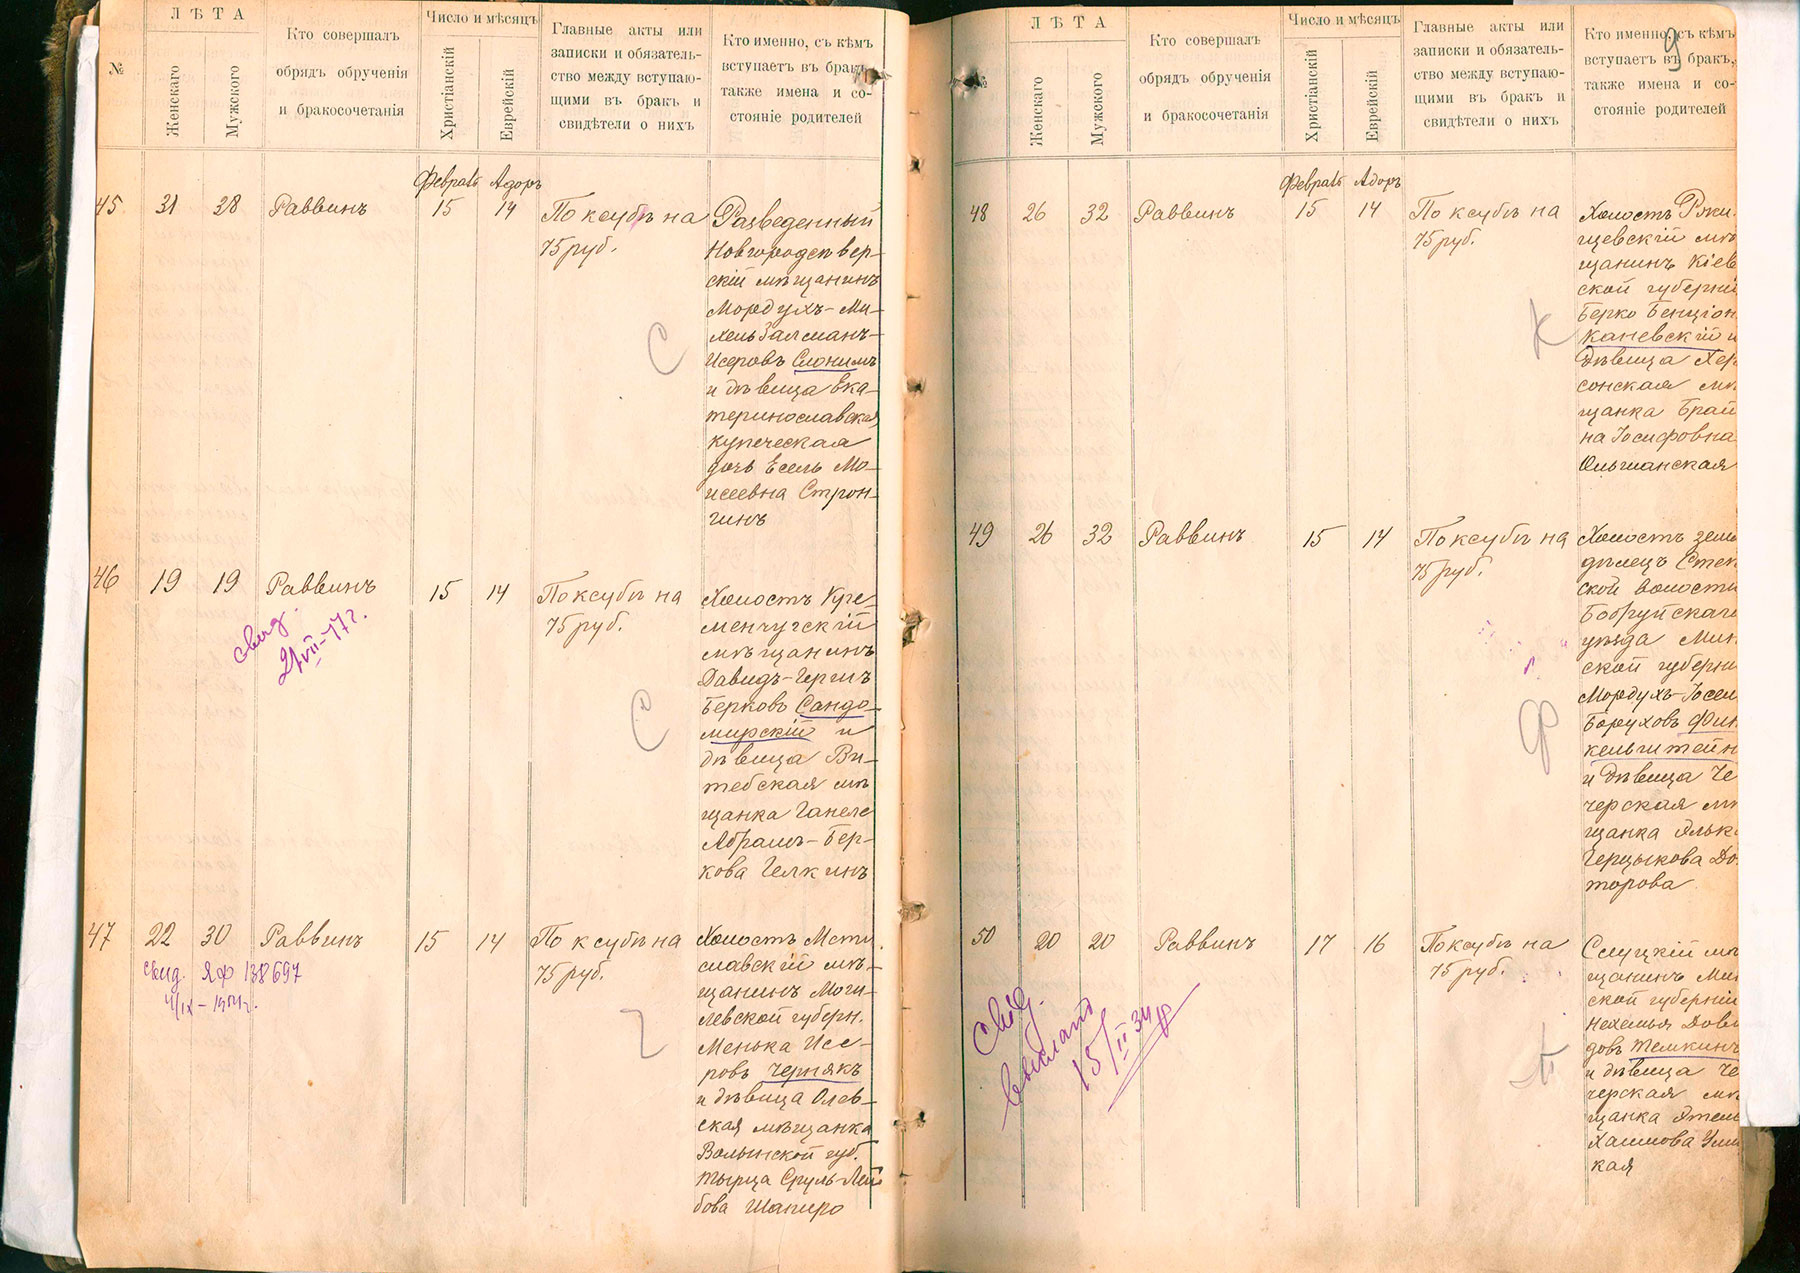 №
ЛѢТА
Женскаго
Мужского
Кто совершалъ
обрядъ обрученія
и бракосочетанія
Число и мѣсяцъ
Христіанскій
Еврейскій
Главные акты или
записки и обязатель-
ство между вступаю-
щими въ бракъ и
свидѣтели о нихъ
Кто именно, съ кѣмъ
вступаетъ въ бракъ,
также имена и со-
стояніе родителей
Февраль Адоръ
45 31 28 Раввинъ 15 14 По ксубѣ на
75 руб.
Разведенный
Новгородсѣвер-
скій мѣщанинъ
Мордухъ-Ми-
хель Залманъ-
Исеровъ Слонимъ
и дѣвица Ека-
теринославская
купеческая
дочь Есель Мо-
исеевна Строн-
гинъ
46 19 19 Раввинъ 15 14 По ксубѣ на
75 руб.
свид.
21/VII-77г.
С
С
Холостъ Кре-
менчугскій
мѣщанинъ
Давидъ-Гершъ
Берковъ Сандо-
мирскій и
дѣвица Ви-
тебская мѣ
щанка Ганеле
Абрамъ-Бер-
кова Гелкинъ
47 22 30 Раввинъ 15 14 По ксубѣ на
75 руб.
свид. ЯФ 138697
4/IX-
Холостъ Мсти
славскій мѣ-
щанинъ Моги-
левской губерн.
Менька Исе-
ровъ Чернякъ
и дѣвица Олев-
ская мѣщанка
Волынской губ.
Тырца Сруль-Лей
бова Шапиро
9
№
ЛѢТА
Женскаго
Мужского
Кто совершалъ
обрядъ обрученія
и бракосочетанія
Число и мѣсяцъ
Христіанскій
Еврейскій
Главные акты или
записки и обязатель-
ство между вступаю-
щими въ бракъ и
свидѣтели о нихъ
Кто именно, съ кѣмъ
вступаетъ въ бракъ,
также имена и со-
стояніе родителей
Февраль Адоръ
48 26 32 Раввинъ 15 14 По ксубѣ на
75 руб.
К
Холостъ Ржи
щевскій мѣ
щанинъ Кіев
ской губерніи
Берко Бенціон
Каневскій и
дѣвица Хер
сонская мѣ
щанка Брай
на Іосифовна
Ольшанская
49 26 32 Раввинъ 15 14 По ксубѣ на
75 руб.
Ф
Холостъ земле
дѣлецъ
ской волости
Бобруйскаго
уѣзда Мин
ской губерніи
Мордухъ-Іосел
Боруховъ Фин
кельштейн
и дѣвица Че
черская мѣ
щанка
Герцыкова До
торова
50 20 20 Раввинъ 17 16 По ксубѣ на
75 руб.
свид.
выслано
15/II 34
Т
Слуцкій мѣ
щанинъ Мин
ской губерніи
Нехемья Дови
довъ Темкинъ
и дѣвица Че
черская мѣ
щанка
Хаимова
кая